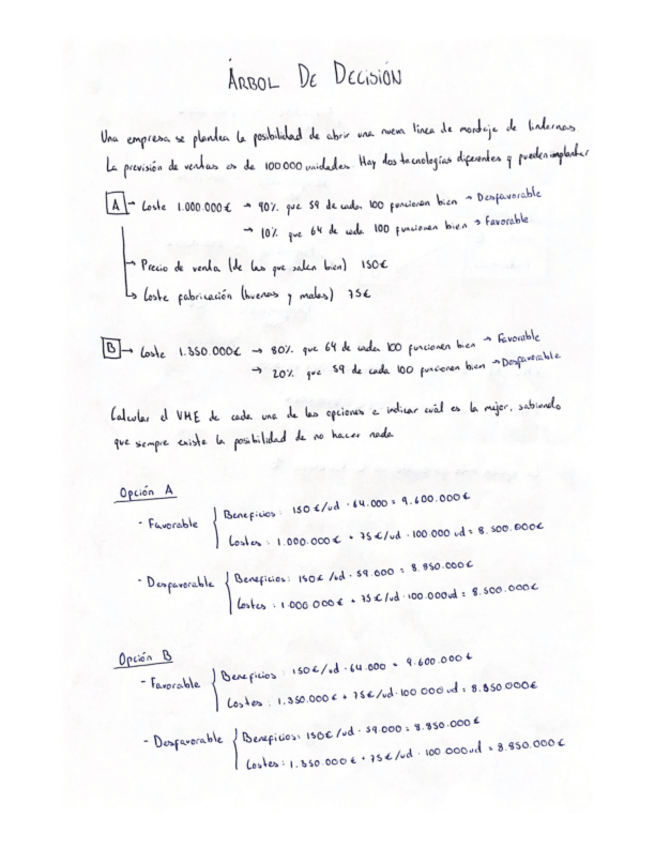 ÁRBOL DE DECISIÓN
Una empresa se plantea la posibilidad de abrir una nueva línea de montaje de linternas.
La previsión de ventas es de 100 000 unidades. Hay dos tecnologías diferentes q pueden implantar
A → Coste 1.000.000€ → 90% que 59 de cada 100 funcionen bien → Desfavorable
→ 10% que 64 de cada 100 funcionen bien → Favorable
→ Precio de venta (de las que salen bien) 150€
→ Coste fabricación (buenas y malas) 75€
B → Coste 1.350.000€ → 80% que 64 de cada 100 funcionen bien → Favorable
→ 20% que 59 de cada 100 funcionen bien → Desfavorable
Calcular el VME de cada una de las opciones e indicar cuál es la mejor, sabiendo
que siempre existe la posibilidad de no hacer nada
Opción A
- Favorable { Beneficios: 150€/ud · 64.000 = 9.600.000€
Costes: 1.000.000€ + 75€/ud · 100 000 ud = 8.500.000€
- Desfavorable { Beneficios: 150€/ud · 59.000 = 8.850.000€
Costes: 1.000.000€ + 75€/ud · 100.000ud = 8.500.000€
Opción B
- Favorable { Beneficios: 150€/ud · 64.000 = 9.600.000€
Costes: 1.350.000€ + 75€/ud · 100 000 ud = 8.850.000€
- Desfavorable { Beneficios: 150€/ud · 59.000 = 8.850.000€
Costes: 1.350.000€ + 75€/ud · 100 000ud = 8.850.000€